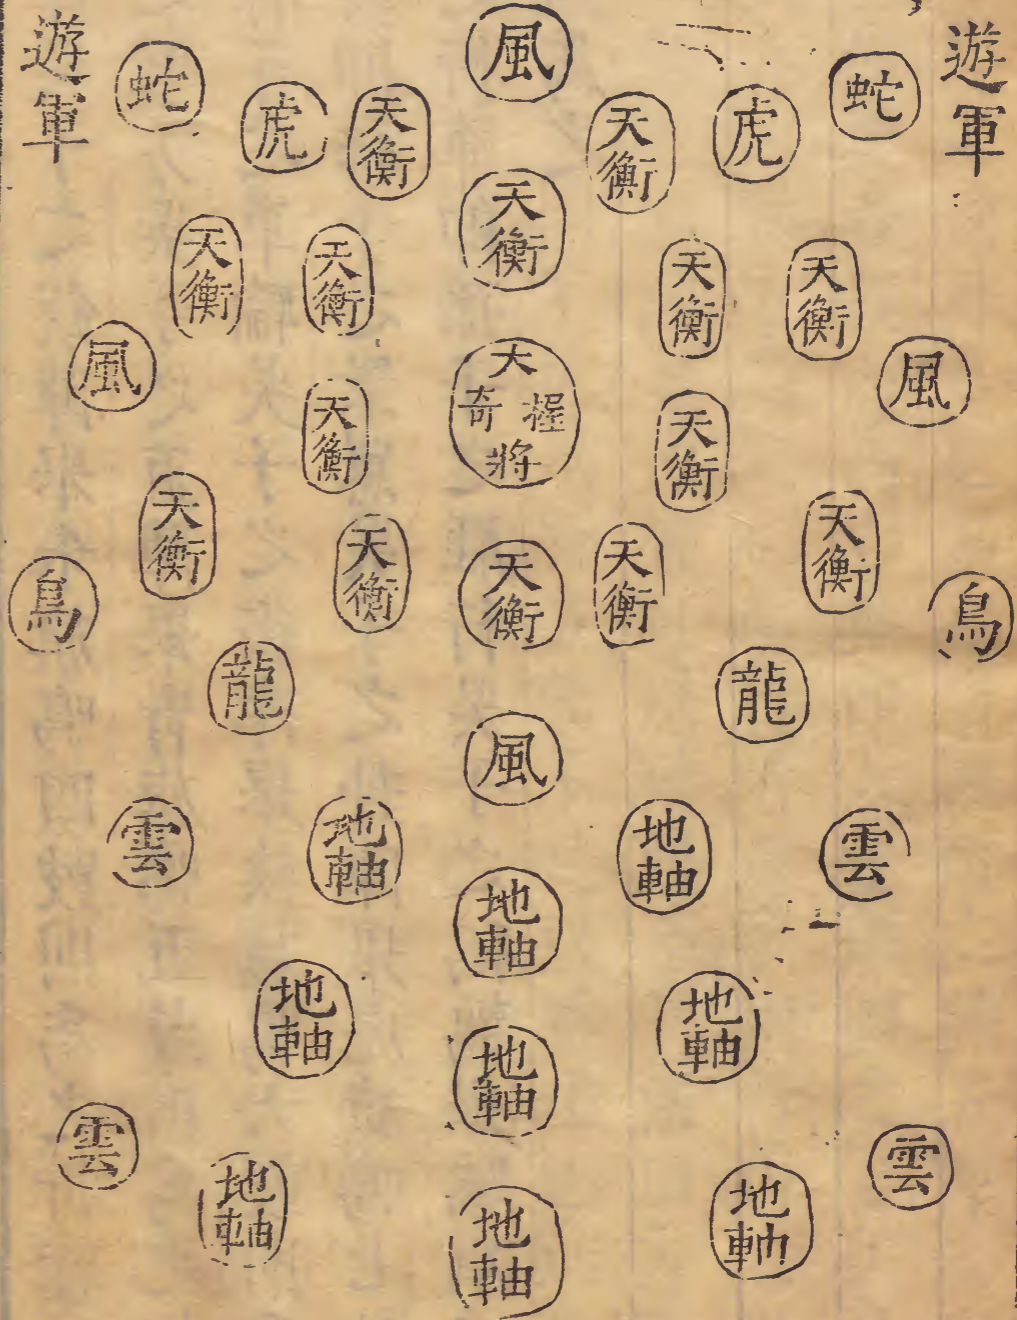 遊軍
蛇
虎
天衡
風
天衡
虎
蛇
遊軍
天衡
天衡
天衡
天衡
天衡
風
天衡
大握奇將
天衡
風
天衡
天衡
天衡
天衡
天衡
鳥
鳥
龍
龍
風
雲
地軸
地軸
雲
地軸
地軸
地軸
地軸
雲
地軸
地軸
地軸
雲